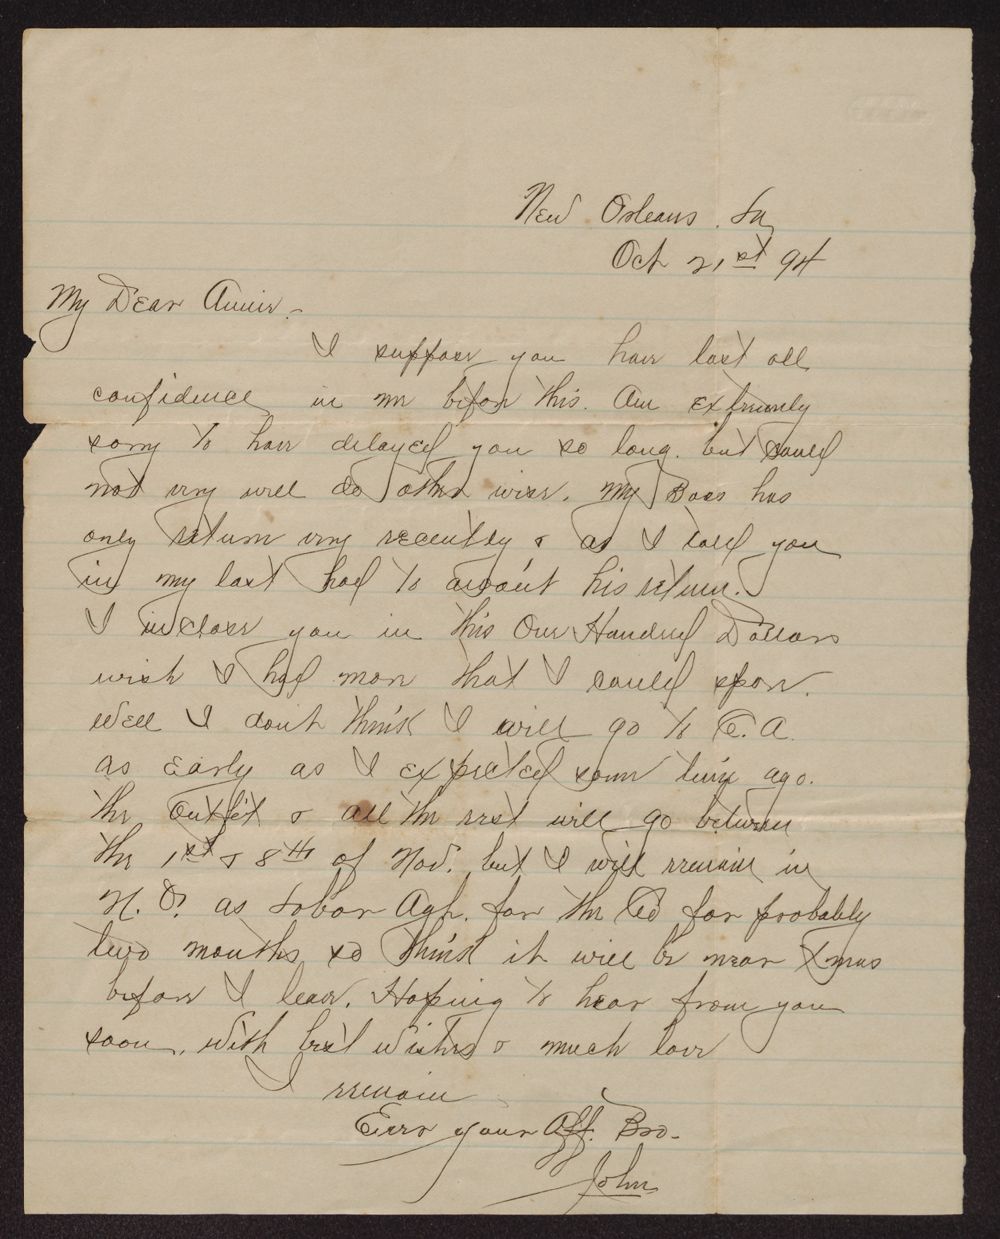 New Orleans, La
Oct 21st 94
My Dear Annie.-
I suppose you have lost all
confidence in me before this. Am extremely
sorry to have delayed you so long. but could
not very well do other wise. My Boss has
only return very recently & as I told you
in my last had to await his return.
I inclose you in this One Hundred Dollars
wish I had more that I could spare.
Well I dont think I will go to C.A.
as early as I expected some time ago.
The outfit & all the rest will go between
the 1st & 8th of Nov. but I will remain in
N.O. as Labor Agt. for the Co for probably
two months, so think it will be near Xmas
before I leave. Hoping to hear from you
soon, with best wishes & much love
I remain
Ever your Aff. Bro.
John